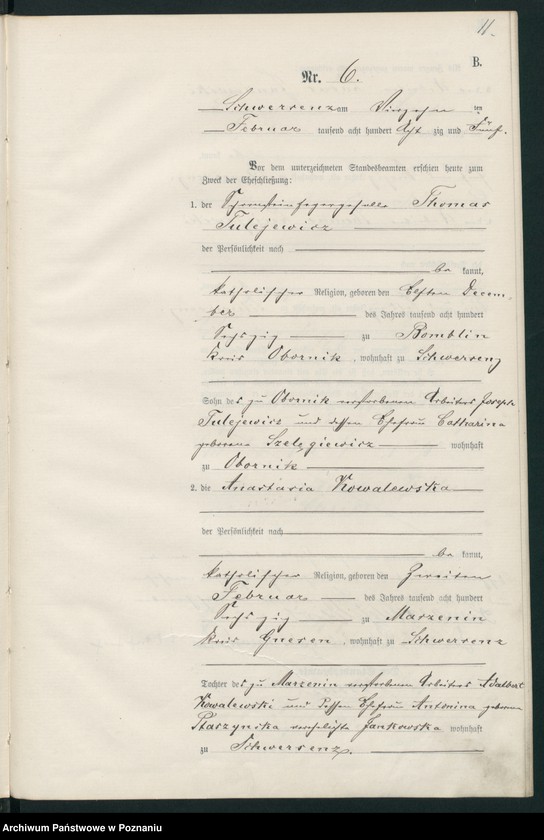 11.
B.
Nr. 6.
Schwersenz am Vierzehn ten
Februar tausend acht hundert Acht zig und Fünf.
Vor dem unterzeichneten Standesbeamten erschien heute zum
Zweck der Eheschließung:
1. der Schornsteinfegergeselle Thomas
Tulejewicz
der Persönlichkeit nach
be kannt,
katholischer Religion, geboren den Elften Decem-
ber des Jahres tausend acht hundert
Sechszig zu Bomblin
Kreis Obornik, wohnhaft zu Schwersenz
Sohn des zu Obornik verstorbenen Arbeiters Joseph
Tulejewicz und dessen Ehefrau Catharina
geborene wohnhaft
zu Obornik
2. die Anastasia Kowalewska
der Persönlichkeit nach
be kannt,
katholischer Religion, geboren den Zweiten
Februar des Jahres tausend acht hundert
Sechszig zu Marzenin
Kreis Gnesen, wohnhaft zu Schwersenz
Tochter des zu Marzenin verstorbenen Arbeiters Adalbert
Kowalewski und dessen Ehefrau Antonina geborene
Staszynska verehelichte Jankowska wohnhaft
zu Schwersenz.
Archiwum Państwowe w Poznaniu